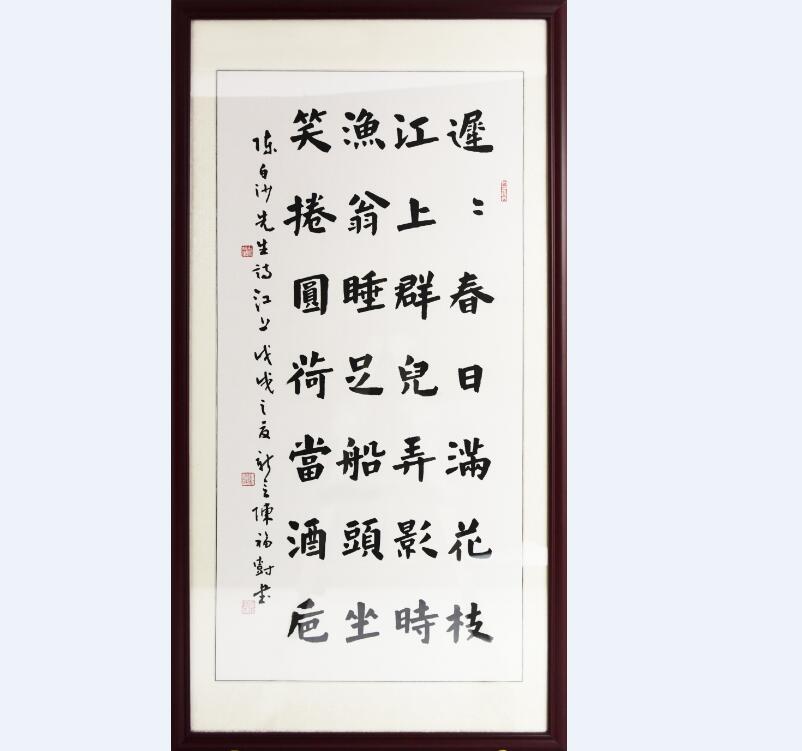 遲〻春日滿花枝
江上群兒弄影時
漁翁睡足船頭坐
笑捲圓荷當酒卮
陳白沙先生詩江上戊戌之夏新會陳福樹書